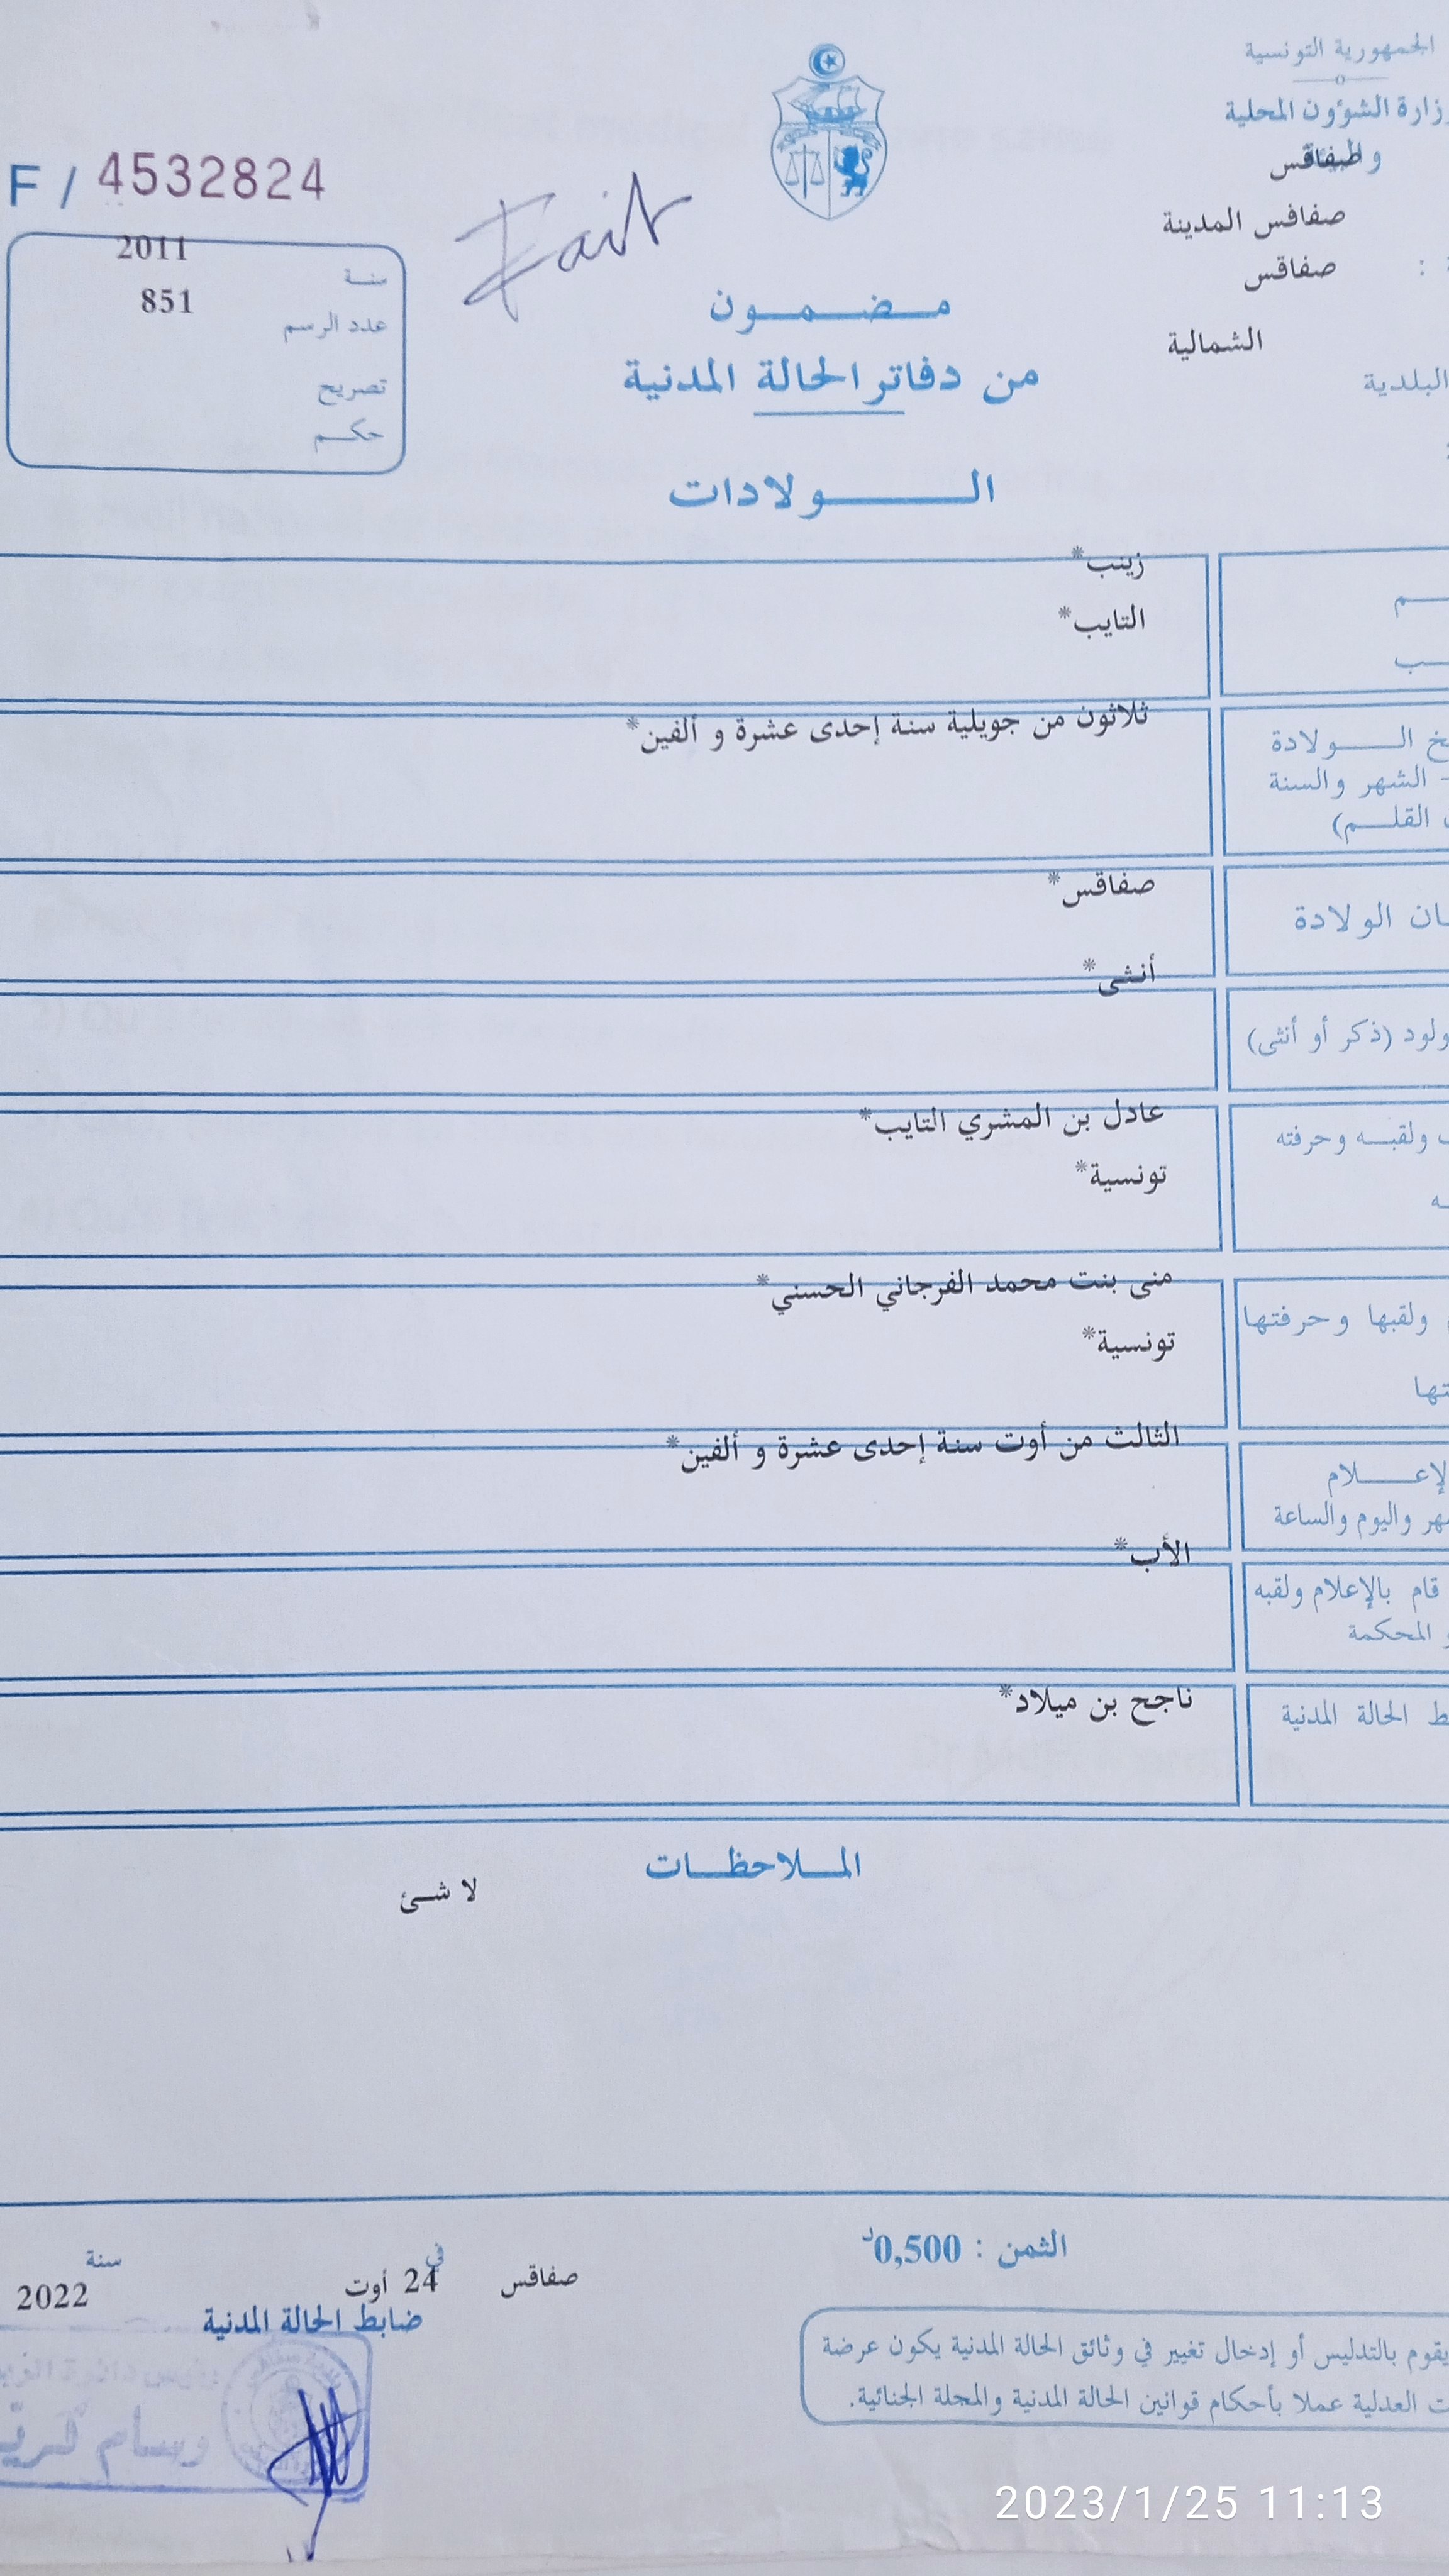 الجمهورية التونسية
وزارة الشؤون المحلية
والبيئة
صفاقس
صفاقس المدينة
صفاقس
الشمالية
البلدية
F / 4532824
Fait
سنة 2011
عدد الرسم 851
تصريح
حكم
مضمون
من دفاتر الحالة المدنية
الولادات
زينب*
التايب*
ثلاثون من جويلية سنة إحدى عشرة و ألفين*
الولادة
- الشهر والسنة
القلم)
صفاقس*
الولادة
أنثى*
(ذكر أو أنثى)
عادل بن المشري التايب*
ولقبه وحرفته
تونسية*
منى بنت محمد الفرجاني الحسني*
ولقبها وحرفتها
تونسية*
الثالث من أوت سنة إحدى عشرة و ألفين*
الإعلام
واليوم والساعة
الأب*
قام بالإعلام ولقبه
المحكمة
ناجح بن ميلاد*
الحالة المدنية
الملاحظات
لا شئ
الثمن : 0,500د
صفاقس في 24 أوت سنة 2022
ضابط الحالة المدنية
يقوم بالتدليس أو إدخال تغيير في وثائق الحالة المدنية يكون عرضة
العدلية عملا بأحكام قوانين الحالة المدنية والمجلة الجنائية.
وسام
2023/1/25 11:13